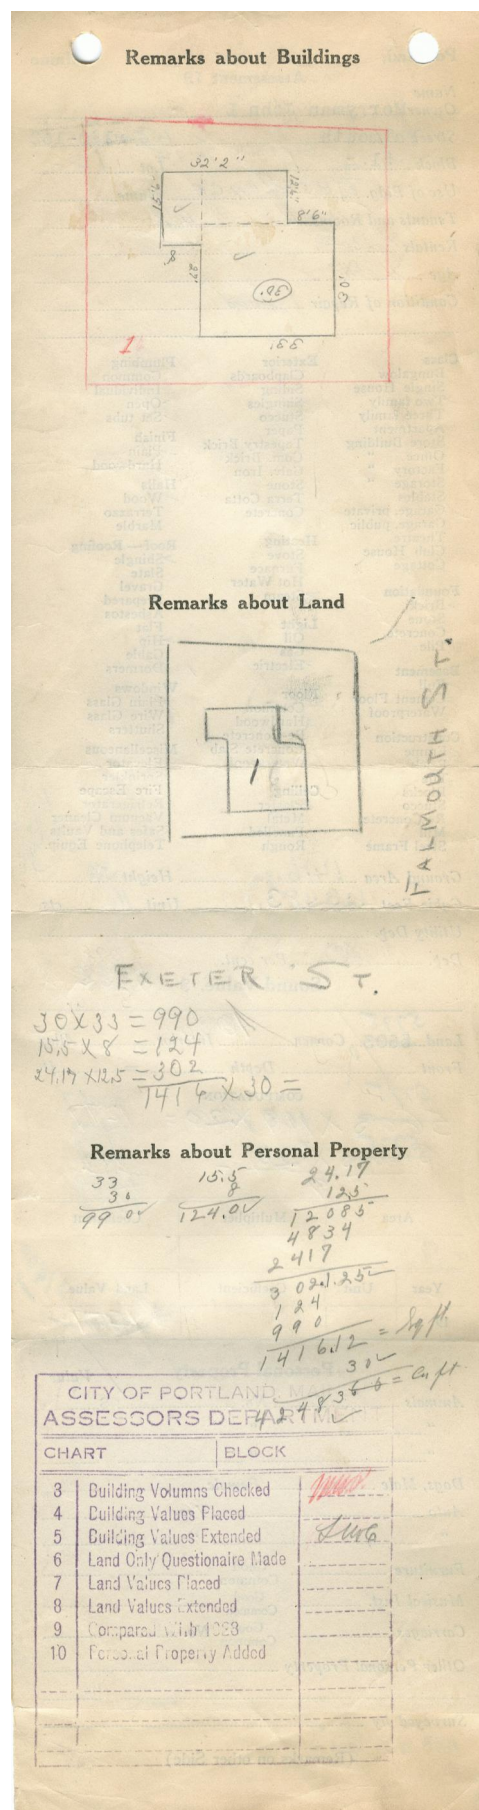 Remarks about Buildings
32'2"
15'6"
12'6"
8'6"
8'
27'
30'
30'
33'
1
Remarks about Land
1
FALMOUTH ST.
EXETER ST.
30 X 33 = 990
15.5 X 8 = 124
24.17 X 12.5 = 302
1416 X 30 =
Remarks about Personal Property
33 15.5 24.17
30 8 12.5
990 124.0 12085
4834
2417
302.125
124
990
1416.12 = Sq ft.
30
42483.60 = Cu ft
CITY OF PORTLAND, ME.
ASSESSORS DEPARTMENT
CHART BLOCK
3 Building Volumns Checked
4 Building Values Placed
5 Building Values Extended
6 Land Only Questionaire Made
7 Land Values Placed
8 Land Values Extended
9 Compared With 1923
10 Personal Property Added